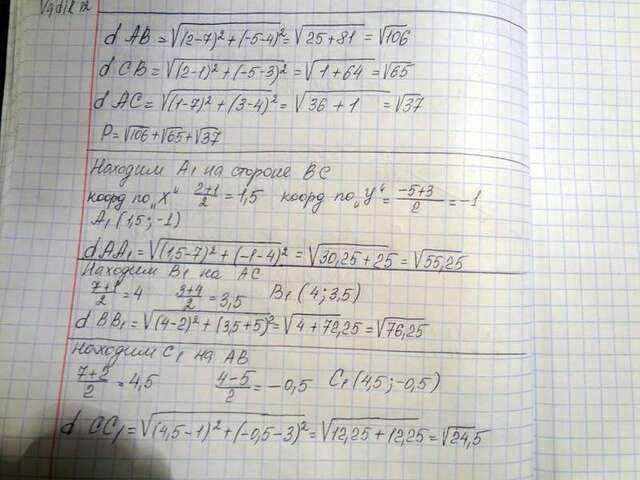 Vadik12
d AB = √((2-7)²+(-5-4)²) = √(25+81) = √106
d CB = √((2-1)²+(-5-3)²) = √(1+64) = √65
d AC = √((1-7)²+(3-4)²) = √(36+1) = √37
P = √106+√65+√37
Находим A₁ на стороне BC
коорд по „x“ (2+1)/2 = 1,5 коорд по „y“ = (-5+3)/2 = -1
A₁ (1,5; -1)
d AA₁ = √((1,5-7)²+(-1-4)²) = √(30,25+25) = √55,25
Находим B₁ на AC
(7+1)/2 = 4 (3+4)/2 = 3,5 B₁ (4; 3,5)
d BB₁ = √((4-2)²+(3,5+5)²) = √(4+72,25) = √76,25
Находим C₁ на AB
(7+2)/2 = 4,5 (4-5)/2 = -0,5 C₁ (4,5; -0,5)
d CC₁ = √((4,5-1)²+(-0,5-3)²) = √(12,25+12,25) = √24,5